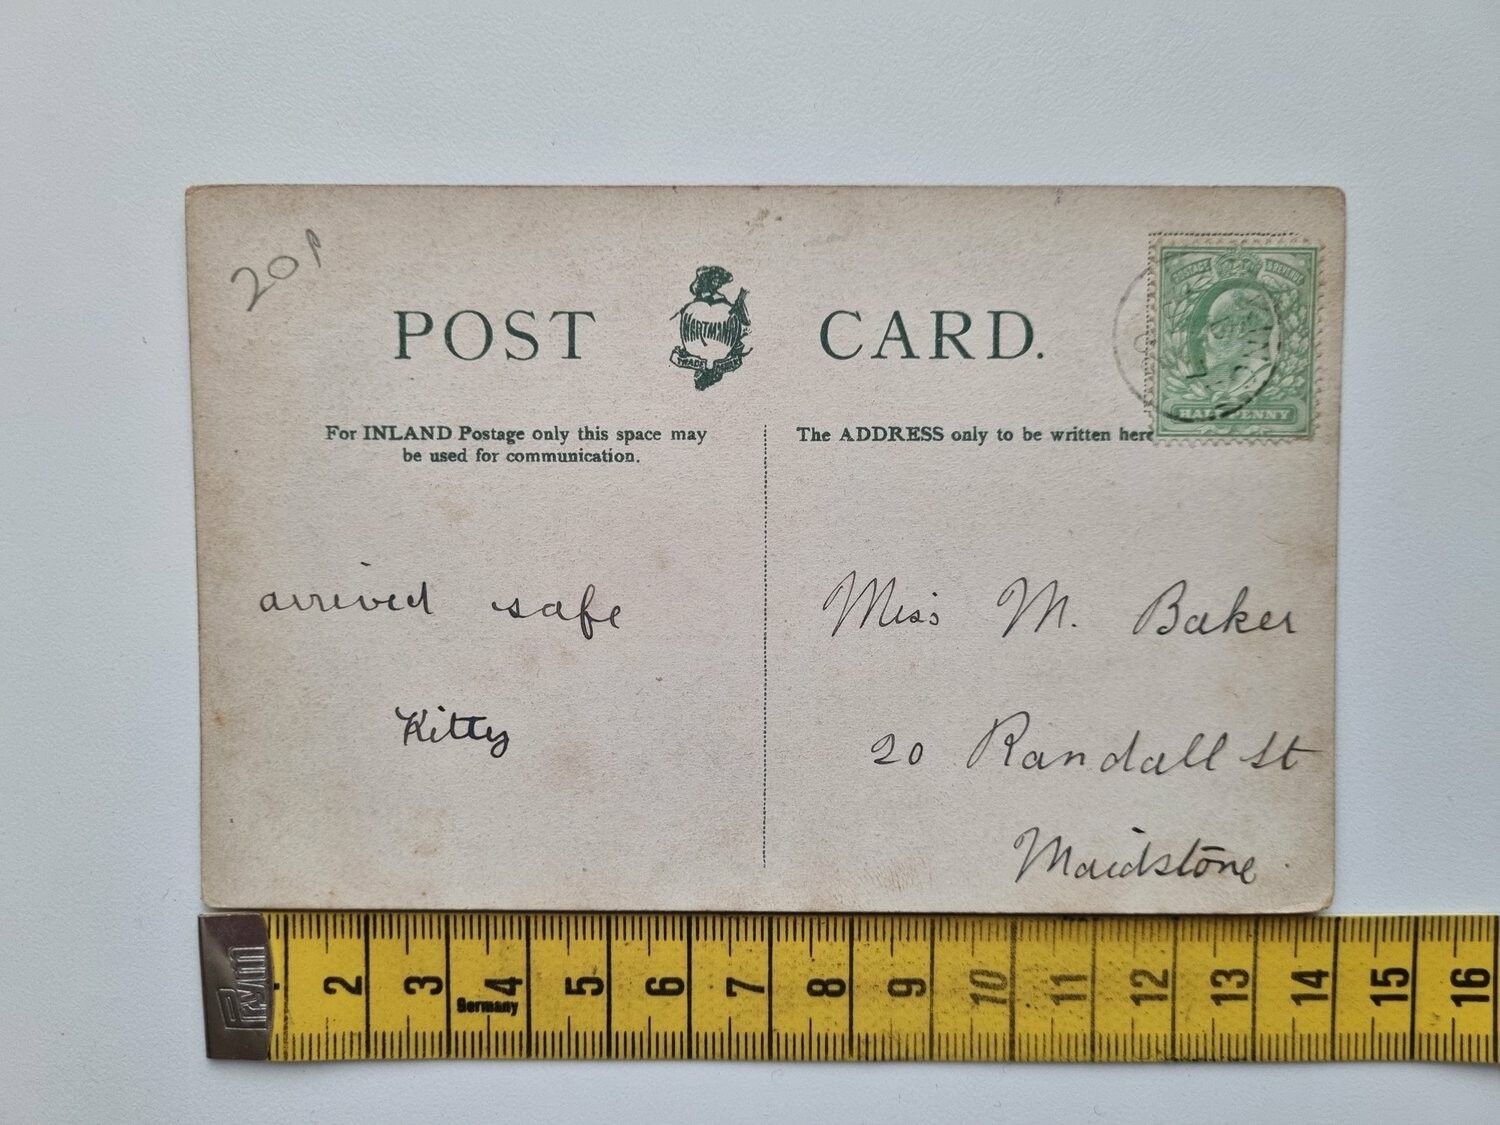 20p
POST CARD.
HARTMANN
TRADE MARK
POSTAGE & REVENUE
HALFPENNY
For INLAND Postage only this space may
be used for communication.
The ADDRESS only to be written here
arrived safe
Kitty
Miss M. Baker
20 Randall St
Maidstone
PRYM
Germany
2 3 4 5 6 7 8 9 10 11 12 13 14 15 16